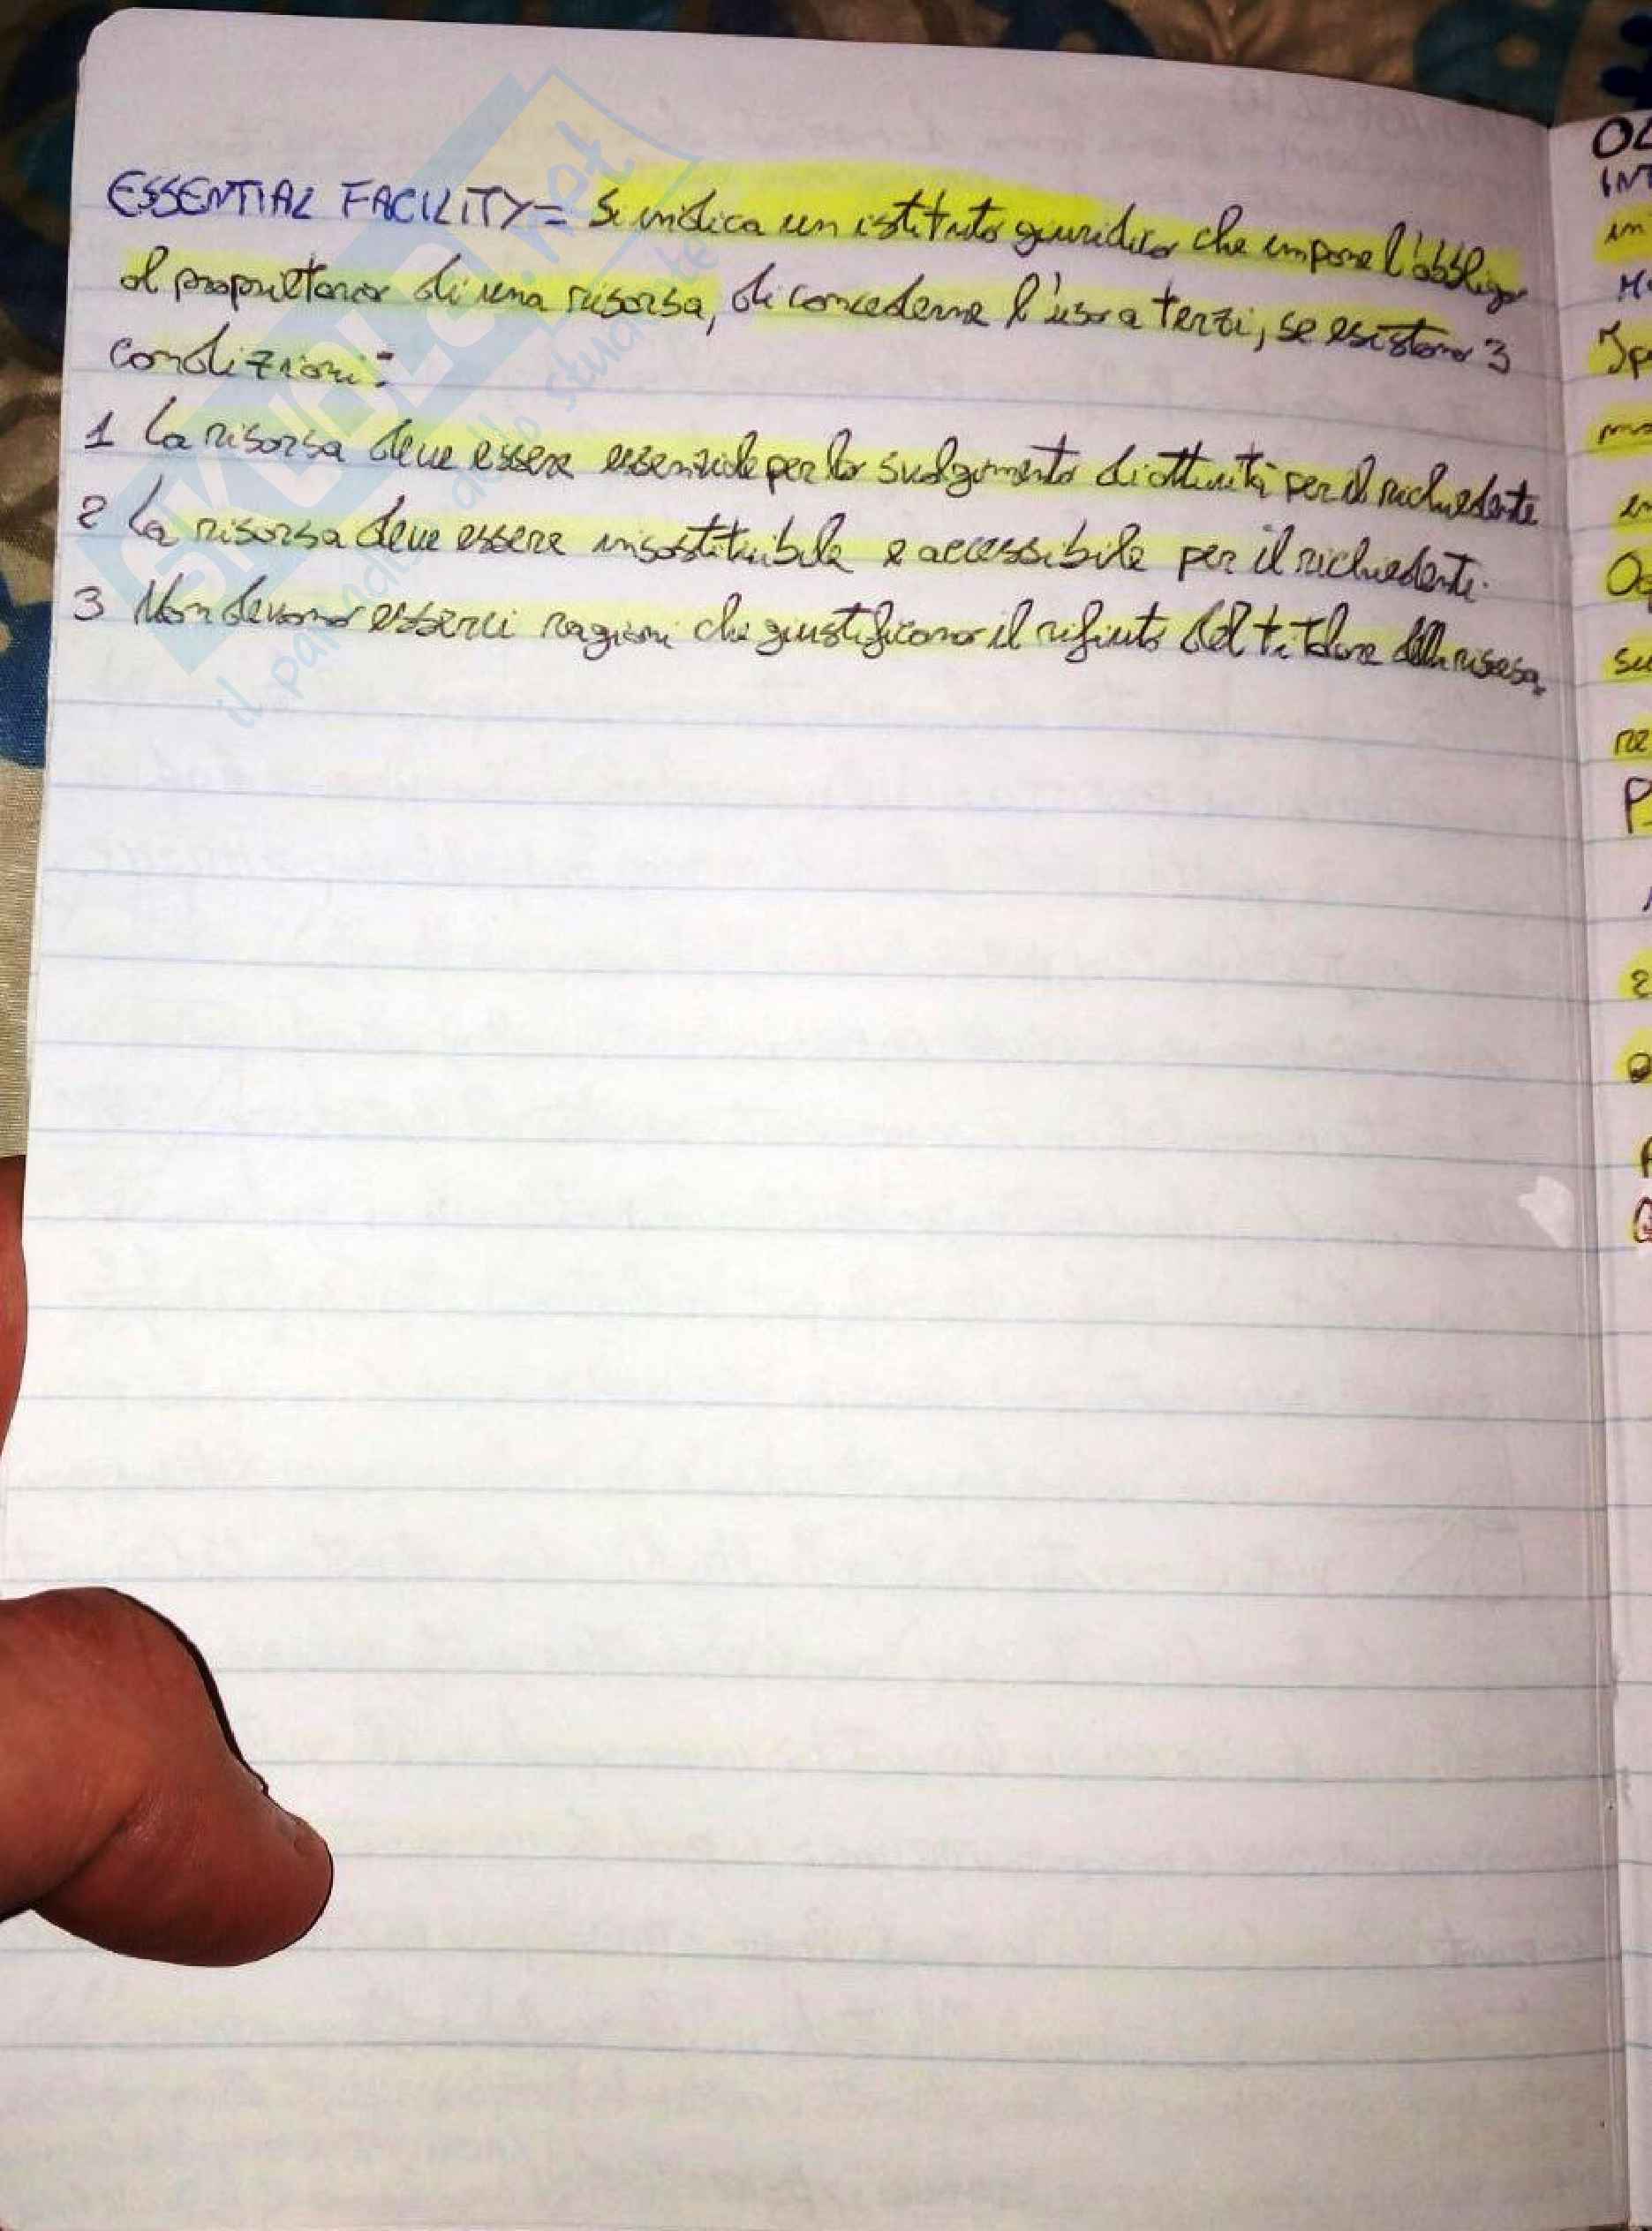 ESSENTIAL FACILITY = Si indica un istituto giuridico che impone l'obbligo
al proprietario di una risorsa, di concederne l'uso a terzi, se esistono 3
condizioni:
1 La risorsa deve essere essenziale per lo svolgimento di attività per il richiedente
2 La risorsa deve essere insostituibile e accessibile per il richiedente.
3 Non devono esserci ragioni che giustificano il rifiuto del titolare della risorsa.
SKUOLA.net
il paradiso dello studente
OL
INT
in
Sp
en
su
P
2